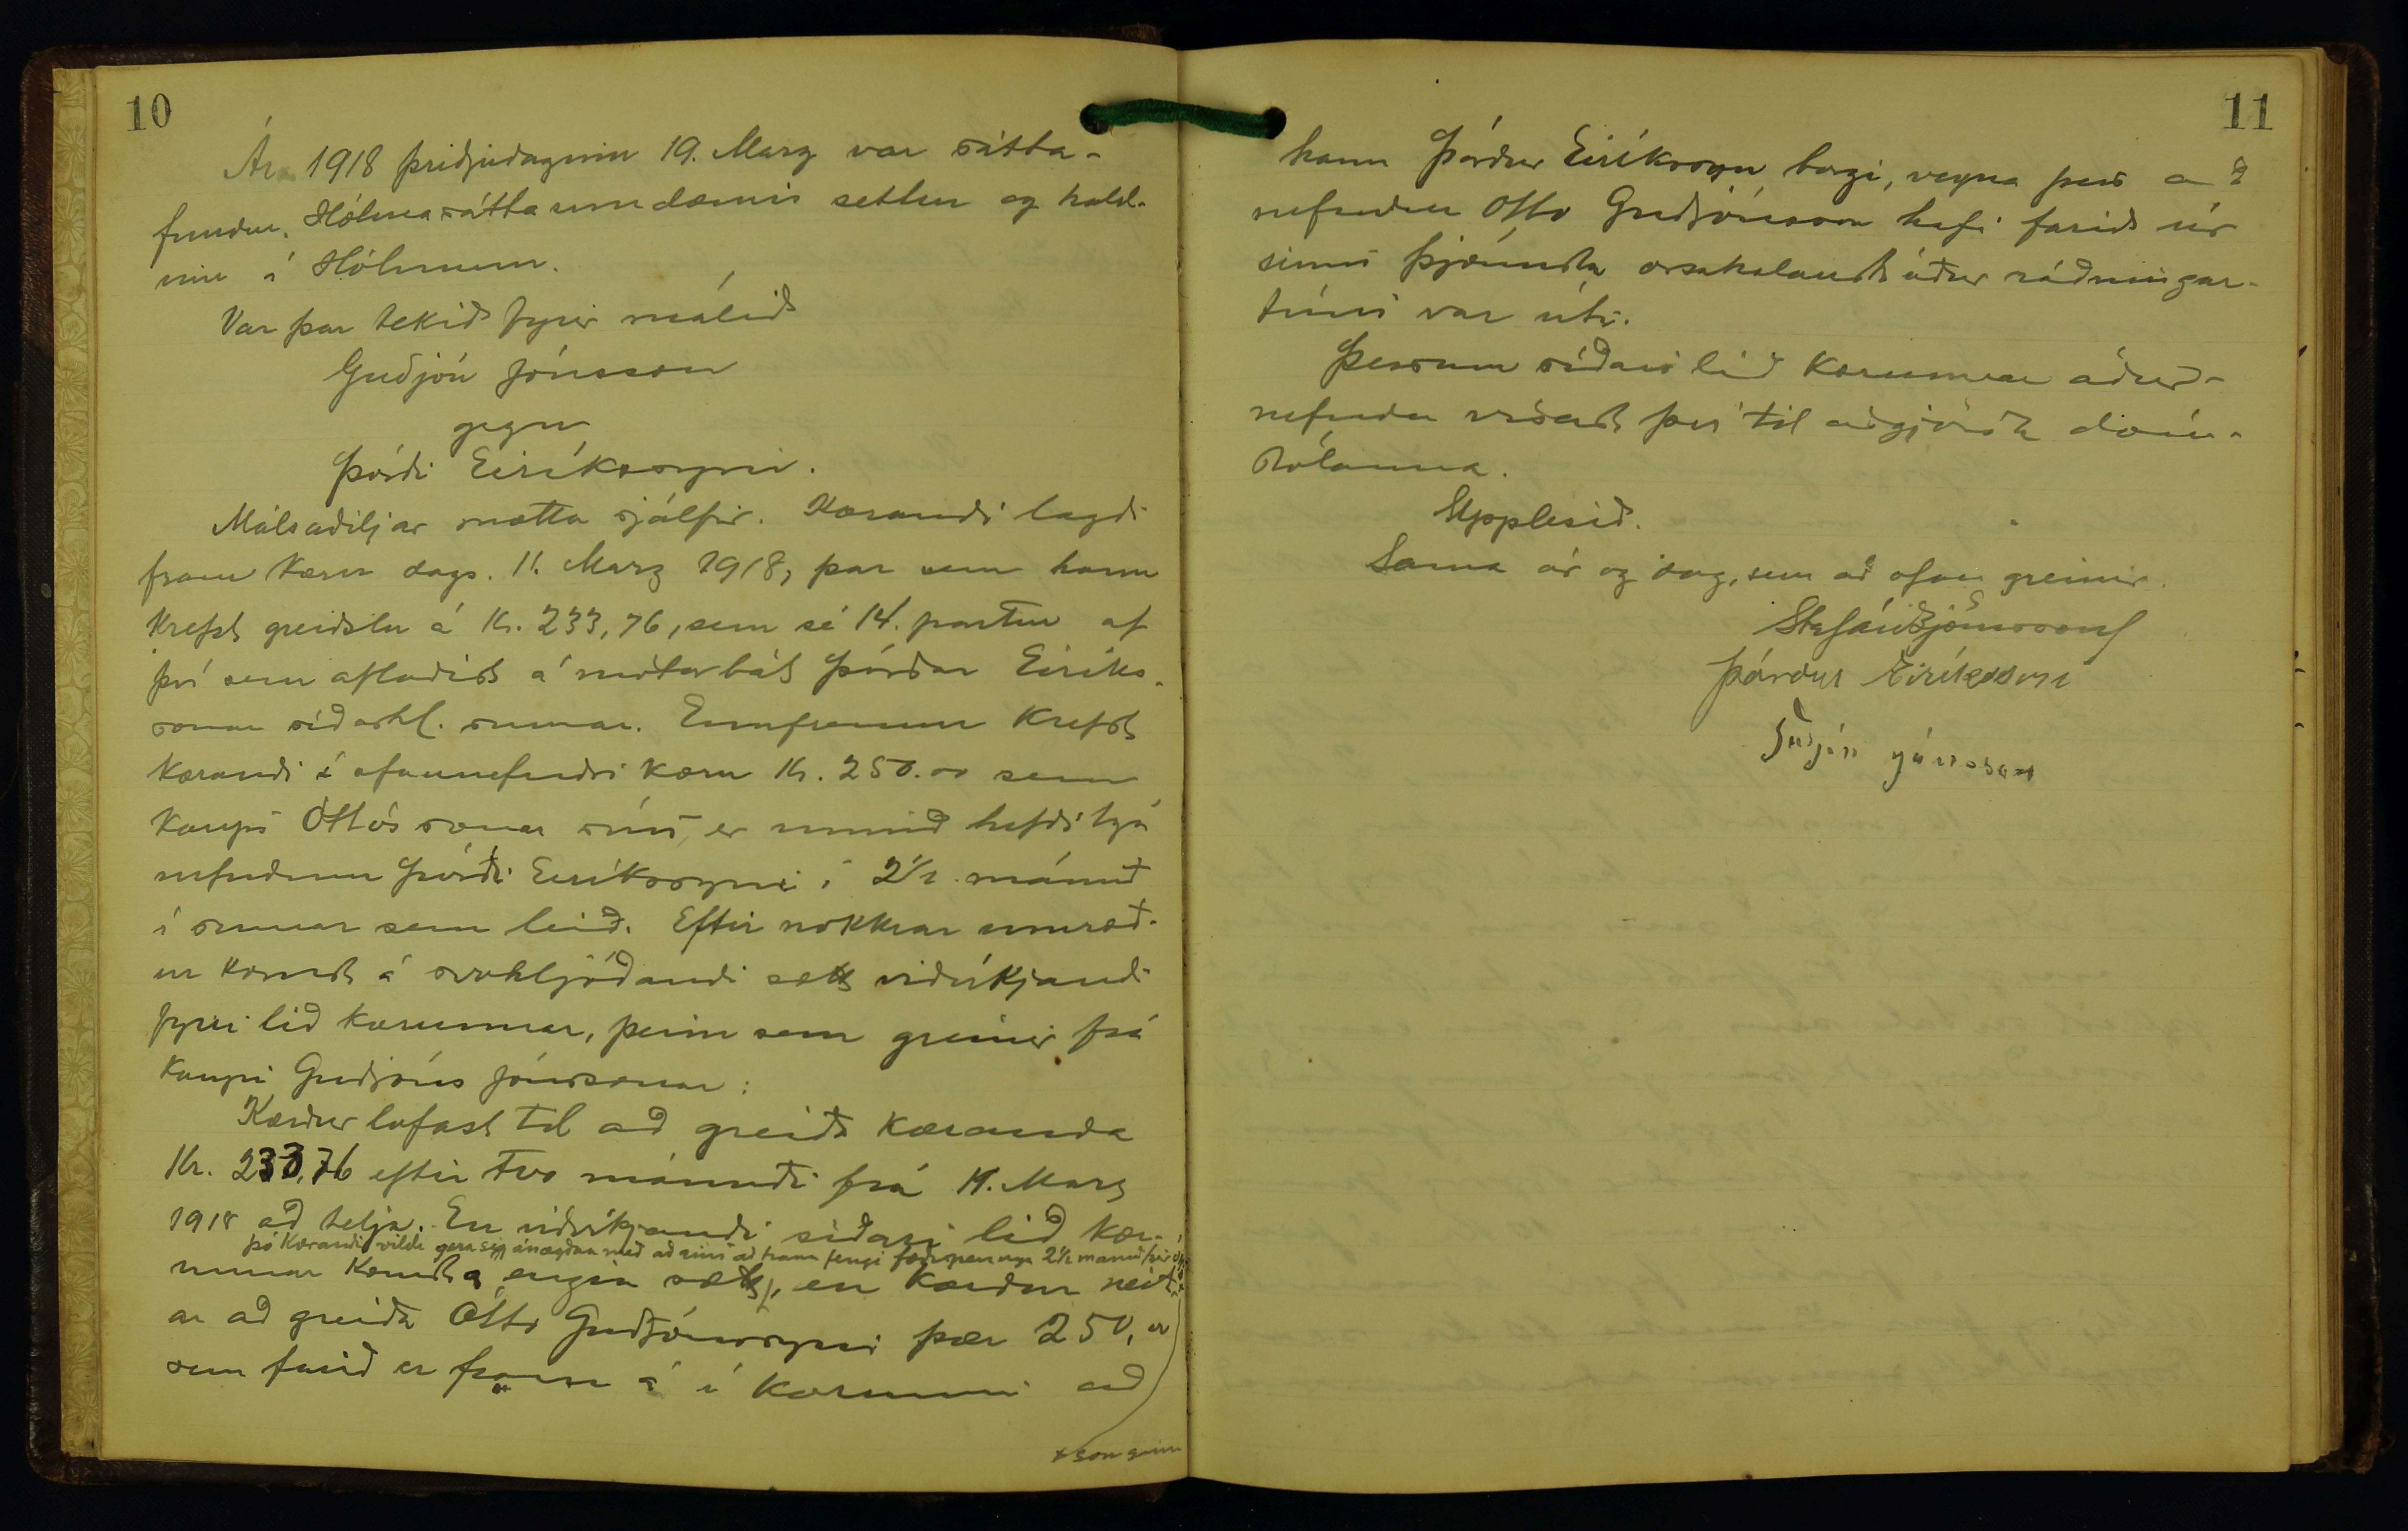 10
Ár 1918 þriðjudaginn 19. Marz var sátta-
fundur Hólmasáttaumdæmis settur og hald-
inn á Hólmum.
Var þar tekið fyrir málið
Guðjón Jónsson
gegn
Þórði Eiríkssyni.
Málsaðiljar mætta sjálfir. Kærandi lagði
fram kæru dags. 11. Marz 1918, þar sem hann
krefst greiðslu á Kr. 233,76, sem sé 14. partur af
því sem aflaðist á mótorbát Þórðar Eiríks-
sonar síðastl. sumar. Ennfremur krefst
kærandi í ofannefndri kæru Kr. 250.00 sem
kaups Ottós sonar síns, er unnið hefði hjá
nefndum Þórði Eiríkssyni í 2½ mánuð
í sumar sem leið. Eftir nokkrar umræð-
ur komst á svohljóðandi sætt viðvíkjandi
fyrri lið kærunnar, þeim sem greinir frá
kaupi Guðjóns Jónssonar:
Kærður lofast til að greiða kæranda
Kr. 233,76 eftir tvo mánuði frá 11. Marz
1918 að telja. En viðvíkjandi síðari lið kær-
þó kærandi vildi gera sig ánægðan með að hann fengi fæðispeninga 2½ mánuð fyrir
unnar komst á engin sætt, en kærður neit-
ar að greiða Ottó Guðjónssyni þær 250, er
sem farið er fram á í kærunni að
x son sinn
11
hann Þórður Eiríksson borgi, vegna þess að
nefndur Otto Guðjónsson hafi farið úr
sinni þjónustu orsakalaust áður ráðningar-
tími var úti.
Þessum síðari lið kærunnar áður-
nefndu vísast því til aðgjörða dóm-
stólanna.
Upplesið.
Sama ár og dag, sem að ofan greinir.
Stefán Björnsson
Þórður Eiríksson
Guðjón Jónsson